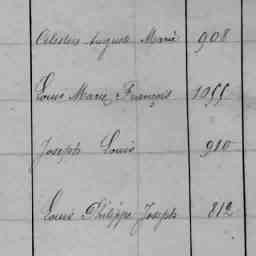 Auguste Marie 908
Louis Marie François 1055
Joseph Louis 910
Louis Philippe Joseph 812